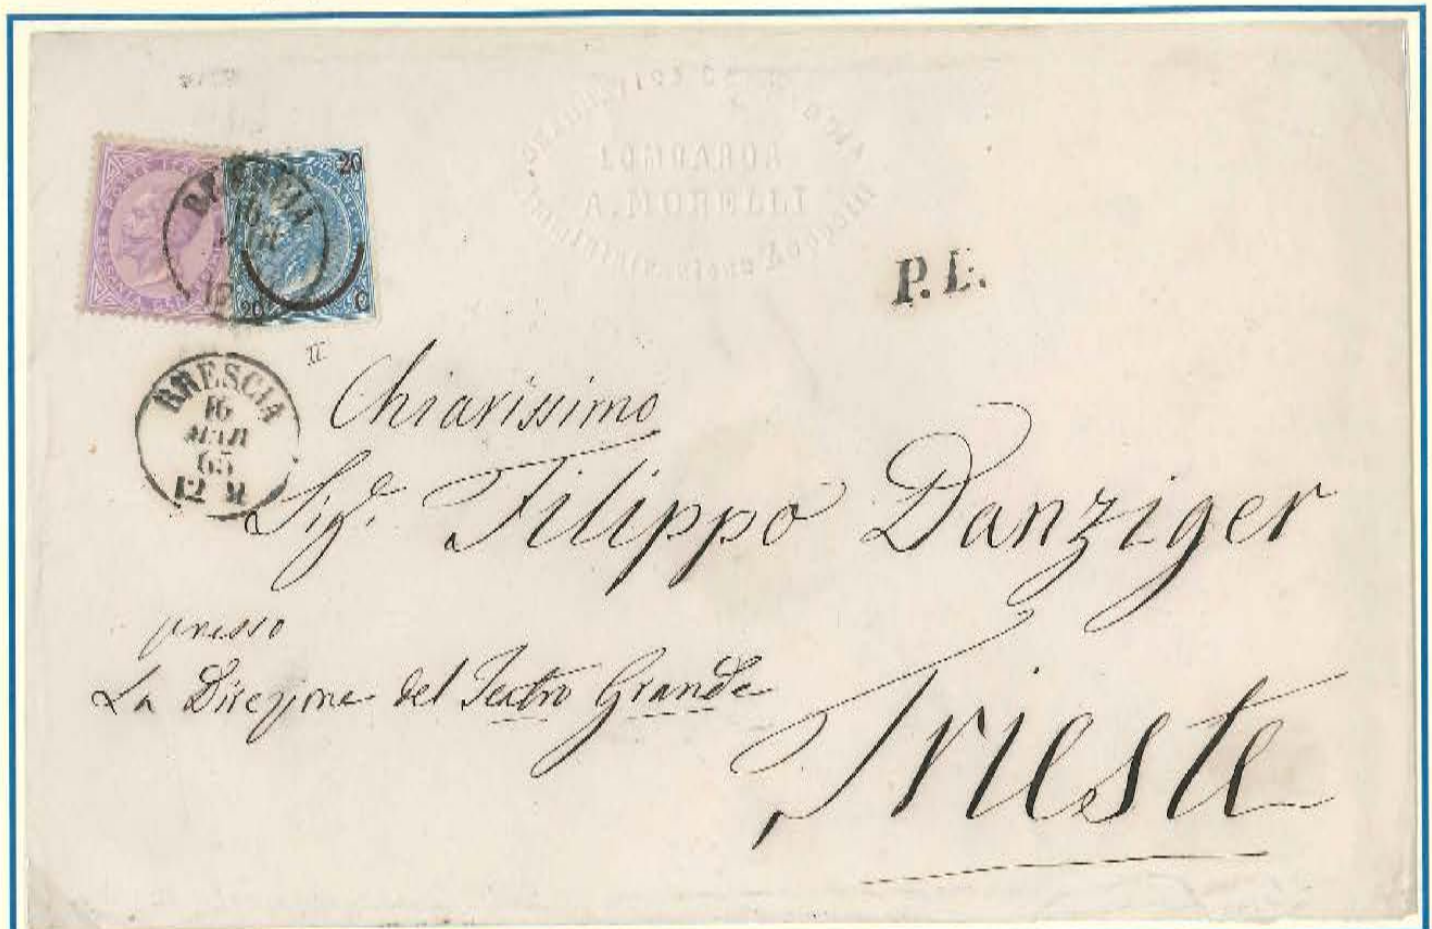 POSTE
20
20 C
BRESCIA
16
MAR
LOMBARDA
A. MORELLI
P.D.
II
BRESCIA
16
MAR
65
12 M
Chiarissimo
Sigr. Filippo Danziger
presso
La Direzione del Teatro Grande
Trieste